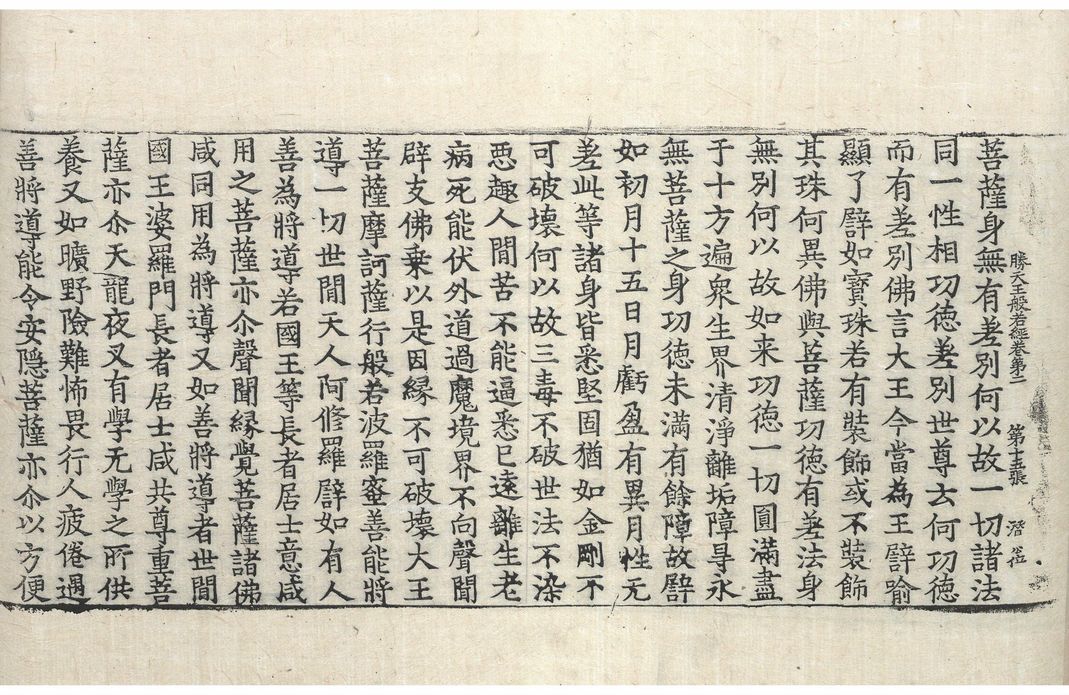 勝天王般若經卷第二　第十五張
菩薩身無有差別何以故一切諸法
同一性相功徳差別世尊去何功徳
而有差別佛言大王今當為王譬喻
顯了譬如寶珠若有裝飾或不裝飾
其珠何異佛與菩薩功徳有差法身
無別何以故如来功徳一切圓滿盡
于十方遍衆生界清淨離垢障㝵永
無菩薩之身功徳未滿有餘障故譬
如初月十五日月虧盈有異月性无
差此等諸身皆悉堅固猶如金剛不
可破壞何以故三毒不破世法不染
悪趣人間苦不能逼悉已遠離生老
病死能伏外道過魔境界不向聲聞
辟支佛乗以是因縁不可破壞大王
菩薩摩訶薩行般若波羅蜜善能將
導一切世間天人阿修羅譬如有人
善為將導若國王等長者居士意咸
用之菩薩亦尒聲聞縁覺菩薩諸佛
咸同用為將導又如善將導者世間
國王婆羅門長者居士咸共尊重菩
薩亦尒天龍夜叉有學无學之所供
養又如曠野險難怖畏行人疲倦遇
善將導能令安隱菩薩亦尒以方便